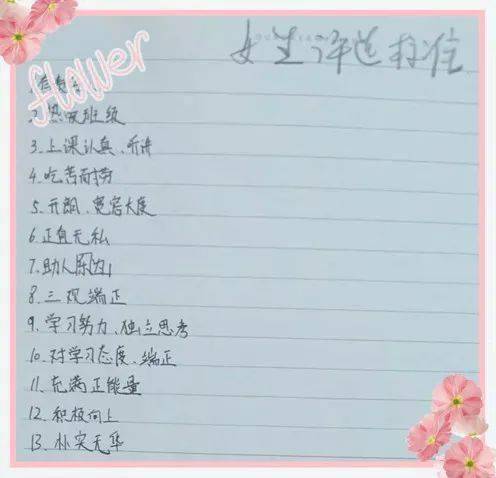 女生评选标准
flower
1.有责
2.热爱班级
3.上课认真、听讲
4.吃苦耐劳
5.开朗、宽容大度
6.正直无私
7.助人乐为
8.三观端正
9.学习努力、独立思考
10.对学习态度、端正
11.充满正能量
12.积极向上
13.朴实无华